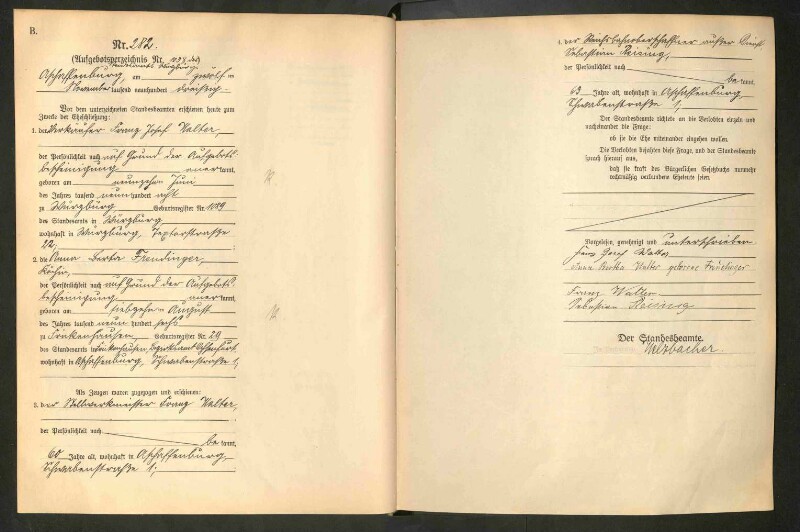 B.
Nr. 282.
(Aufgebotsverzeichnis Nr.
Aschaffenburg, am zwölften
November tausend neunhundert dreißig.
Vor dem unterzeichneten Standesbeamten erschienen heute zum
Zwecke der Eheschließung:
1. der Verkäufer Franz Josef Walter,
der Persönlichkeit nach auf Grund der Aufgebots-
bescheinigung anerkannt,
geboren am neunzehn Juni
des Jahres tausend neun hundert acht
zu Würzburg Geburtsregister Nr. 1089
des Standesamts in Würzburg
wohnhaft in Würzburg, Textorstraße
22;
2. die Anna Berta Freudinger,
Köchin,
der Persönlichkeit nach auf Grund der Aufgebots-
bescheinigung anerkannt,
geboren am siebzehn August
des Jahres tausend neun hundert sechs
zu Frickenhausen, Geburtsregister Nr. 29
des Standesamts in Frickenhausen, Bezirksamt Ochsenfurt
wohnhaft in Aschaffenburg, Schwabenstraße 1;
Als Zeugen waren zugezogen und erschienen:
3. der Stellwerkmeister Franz Walter,
der Persönlichkeit nach
be kannt,
60 Jahre alt, wohnhaft in Aschaffenburg,
Schwabenstraße 1;
4. der Reichsbahnoberschaffner außer Dienst
Sebastian Reising,
der Persönlichkeit nach
be kannt,
63 Jahre alt, wohnhaft in Aschaffenburg
Schwabenstraße 1;
Der Standesbeamte richtete an die Verlobten einzeln und
nacheinander die Frage:
ob sie die Ehe miteinander eingehen wollen.
Die Verlobten bejahten diese Frage, und der Standesbeamte
sprach hierauf aus,
daß sie kraft des Bürgerlichen Gesetzbuchs nunmehr
rechtmäßig verbundene Eheleute seien.
Vorgelesen, genehmigt und unterschrieben
Franz Josef Walter
Anna Bertha Walter geborene Freudinger
Franz Walter
Sebastian Reising
Der Standesbeamte.
Welzbacher.